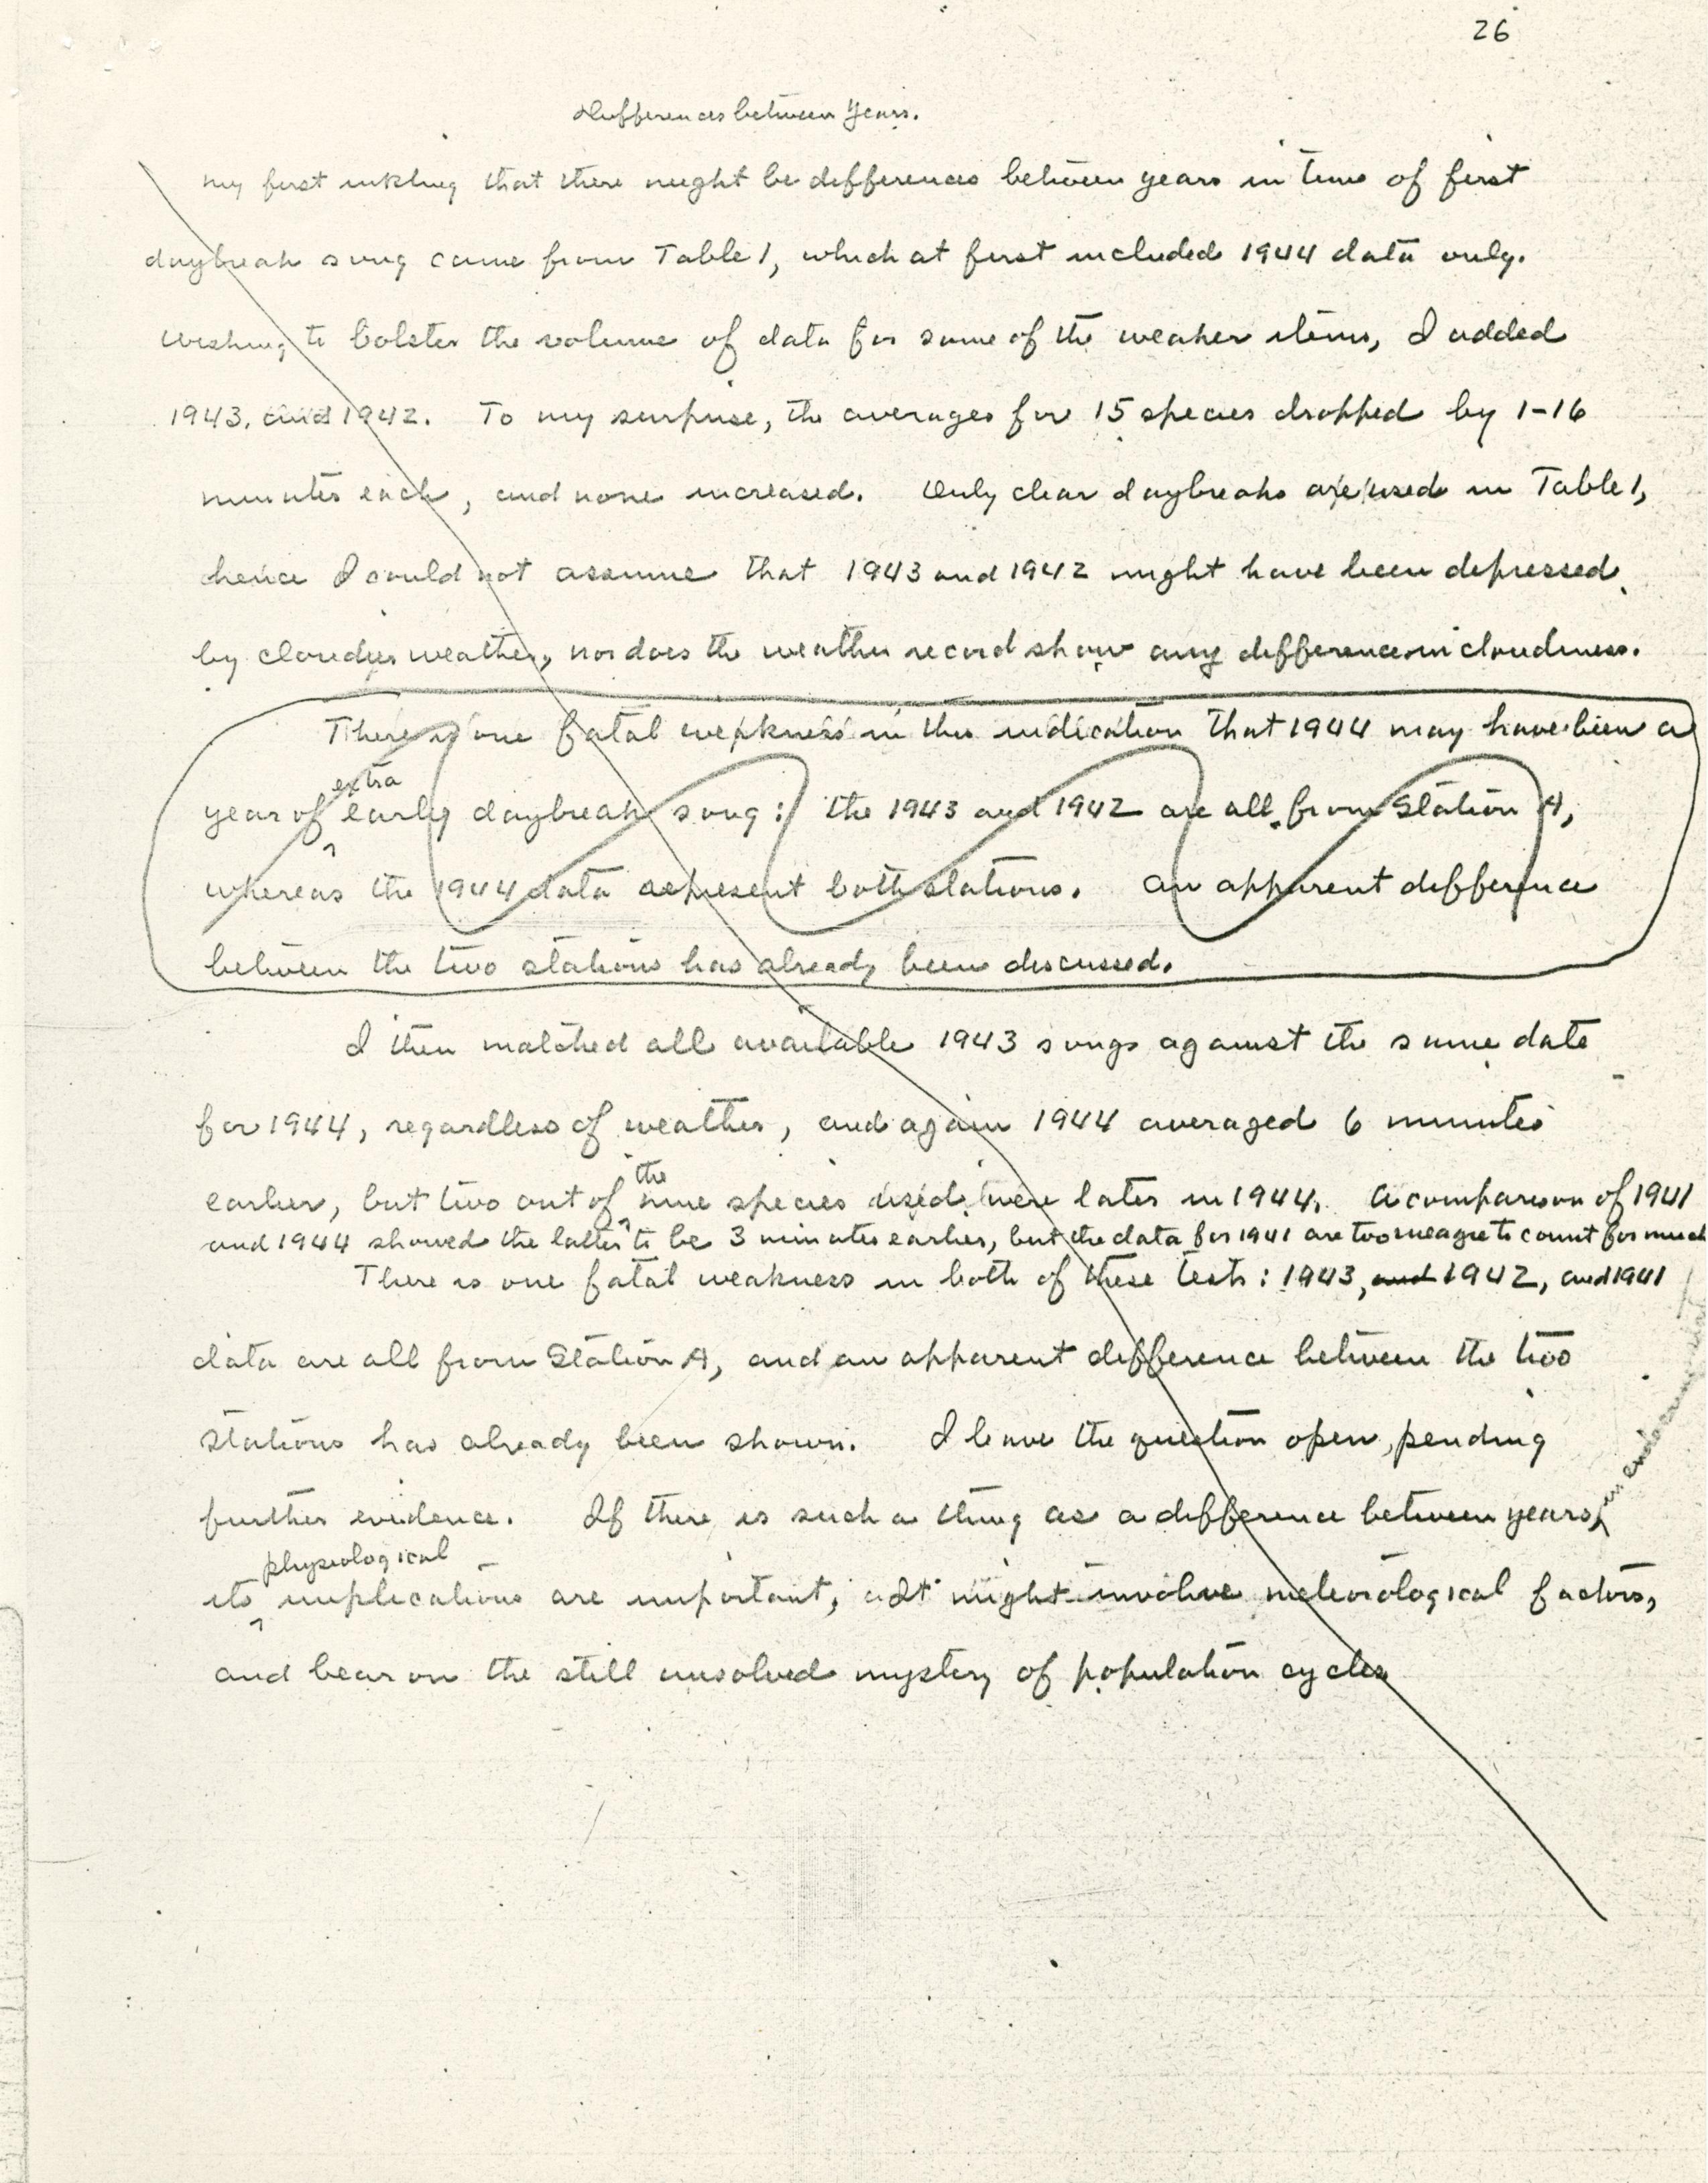 26
Differences between Years.
My first inkling that there might be differences between years in time of first
daybreak song came from Table 1, which at first included 1944 data only.
Wishing to bolster the volume of data for some of the weaker items, I added
1943, and 1942. To my surprise, the averages for 15 species dropped by 1-16
minutes each, and none increased. Only clear daybreaks are used in Table 1,
hence I could not assume that 1943 and 1942 might have been depressed
by cloudier weather, nor does the weather record show any difference in cloudiness.
There is one fatal weakness in this indication that 1944 may have been a
extra
year of early daybreak song: the 1943 and 1942 are all from Station A,
whereas the 1944 data represent both stations. An apparent difference
between the two stations has already been discussed.
I then matched all available 1943 songs against the same date
for 1944, regardless of weather, and again 1944 averaged 6 minutes
the
earlier, but two out of nine species used were later in 1944. A comparison of 1941
and 1944 showed the latter to be 3 minutes earlier, but the data for 1941 are too meagre to count for much
There is one fatal weakness in both of these tests: 1943, and 1942, and 1941
data are all from Station A, and an apparent difference between the two
stations has already been shown. I leave the question open, pending
further evidence. If there is such a thing as a difference between years,
physiological
its implications are important; it might involve meteorological factors,
and bear on the still unsolved mystery of population cycles